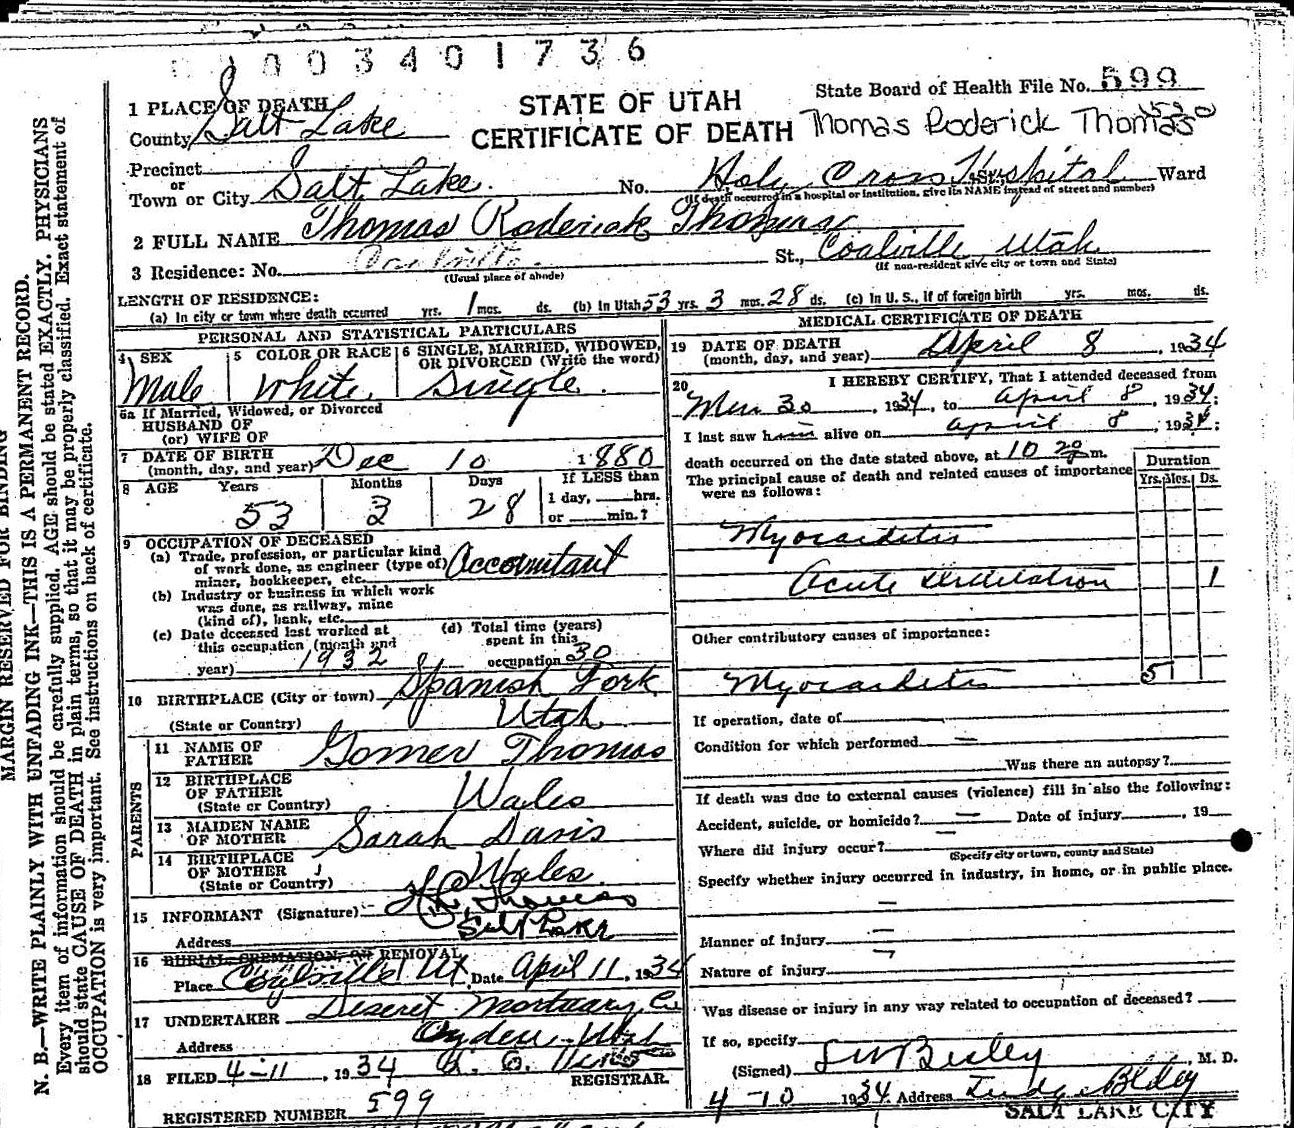 0 0 3 4 0 1 7 3 6
State Board of Health File No. 599
1 PLACE OF DEATH
STATE OF UTAH
CERTIFICATE OF DEATH
Thomas Roderick Thomas
County Salt Lake
Precinct
or
Town or City Salt Lake No. Holy Cross Hospital St., Ward
(If death occurred in a hospital or institution, give its NAME instead of street and number)
2 FULL NAME Thomas Roderick Thomas
3 Residence: No. St., Coalville Utah
(Usual place of abode) (If non-resident give city or town and State)
LENGTH OF RESIDENCE:
(a) In city or town where death occurred yrs. 1 mos. ds. (b) In Utah 53 yrs. 3 mos. 28 ds. (c) In U. S., if of foreign birth yrs. mos. ds.
PERSONAL AND STATISTICAL PARTICULARS
4 SEX
Male
5 COLOR OR RACE
White
6 SINGLE, MARRIED, WIDOWED,
OR DIVORCED (Write the word)
Single
6a If Married, Widowed, or Divorced
HUSBAND OF
(or) WIFE OF
7 DATE OF BIRTH
(month, day, and year) Dec 10 1880
8 AGE Years Months Days If LESS than
53 3 28 1 day, hrs.
or min.?
9 OCCUPATION OF DECEASED
(a) Trade, profession, or particular kind
of work done, as engineer (type of) Accountant
miner, bookkeeper, etc.
(b) Industry or business in which work
was done, as railway, mine
(kind of), bank, etc.
(c) Date deceased last worked at
this occupation (month and
year) 1932
(d) Total time (years)
spent in this
occupation 30
10 BIRTHPLACE (City or town) Spanish Fork
(State or Country) Utah
PARENTS
11 NAME OF
FATHER Gomer Thomas
12 BIRTHPLACE
OF FATHER
(State or Country) Wales
13 MAIDEN NAME
OF MOTHER Sarah Davis
14 BIRTHPLACE
OF MOTHER
(State or Country) Wales
15 INFORMANT (Signature) Thomas
Address Salt Lake
16 BURIAL, CREMATION, OR REMOVAL
Place Coalville Ut Date April 11, 1934
17 UNDERTAKER Deseret Mortuary Co
Address Ogden Utah
18 FILED 4-11, 1934
REGISTRAR.
REGISTERED NUMBER 599
MEDICAL CERTIFICATE OF DEATH
19 DATE OF DEATH
(month, day, and year) April 8, 1934
20 I HEREBY CERTIFY, That I attended deceased from
30, 1934, to April 8, 1934;
I last saw him alive on April 8, 1934;
death occurred on the date stated above, at 10 m.
The principal cause of death and related causes of importance
were as follows:
Duration
Yrs. Mos. Ds.
Myocarditis
Acute dilatation 1
Other contributory causes of importance:
Myocarditis 5
If operation, date of
Condition for which performed
Was there an autopsy?
If death was due to external causes (violence) fill in also the following:
Accident, suicide, or homicide? Date of injury, 19
Where did injury occur?
(Specify city or town, county and State)
Specify whether injury occurred in industry, in home, or in public place.
Manner of injury
Nature of injury
Was disease or injury in any way related to occupation of deceased?
If so, specify
(Signed), M. D.
4-10 1934 Address Bldg
SALT LAKE CITY
MARGIN RESERVED FOR BINDING
N. B.—WRITE PLAINLY WITH UNFADING INK—THIS IS A PERMANENT RECORD.
Every item of information should be carefully supplied. AGE should be stated EXACTLY. PHYSICIANS
should state CAUSE OF DEATH in plain terms, so that it may be properly classified. Exact statement of
OCCUPATION is very important. See instructions on back of certificate.